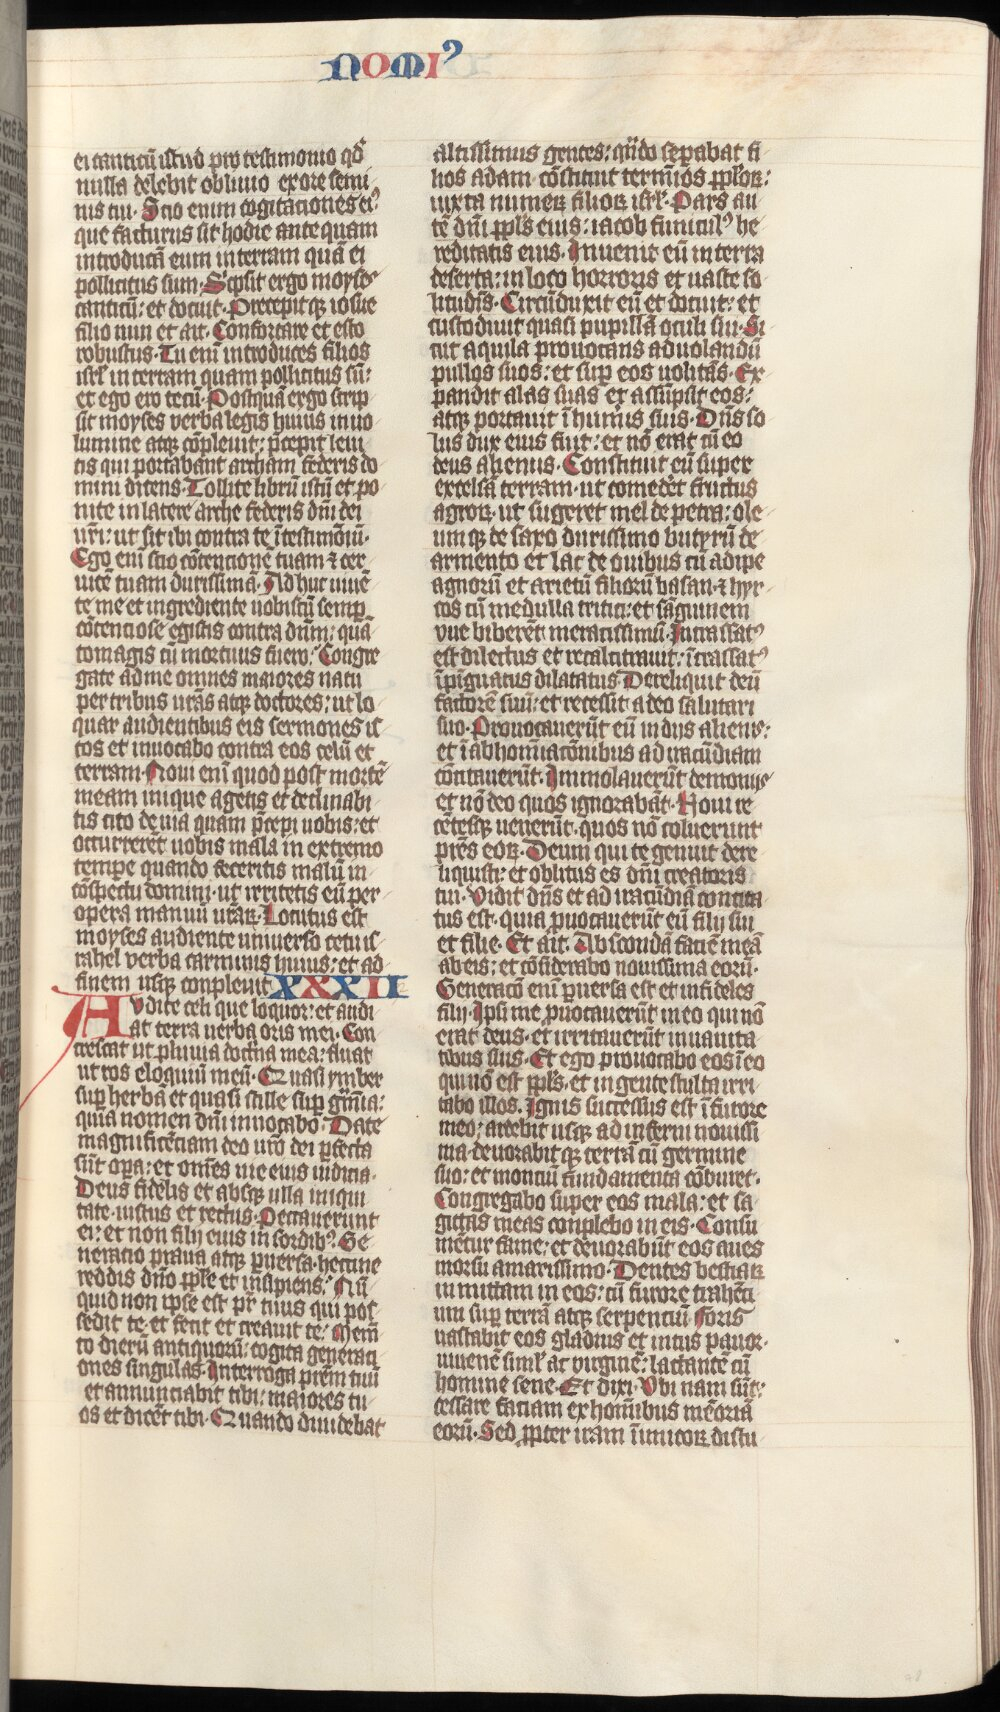 nomiꝰ
ei canticū istud pro testimonio qđ
nulla delebit obliuio ex ore semi
nis tui. Scio enim cogitaciones eiꝰ
que facturus sit hodie ante quam
introducā eum in terram quā ei
pollicitus sum. Scpsit ergo moyses
canticū: et docuit. Precepitqꝫ iosue
filio nun et ait. Confortare et esto
robustus. Tu eni introduces filios
isrl in terram quam pollicitus sū:
et ego ero tecū. Postquā ergo scrip
sit moyses verba legis huius in uo
lumine atqꝫ cōpleuit: p̄cepit leui
tis qui portabant archam federis do
mini dicens. Tollite librū istū et po
nite in latere arche federis dn̄i dei
vr̄i: ut sit ibi contra te ī testimōiū.
Ego enī scio cōtencionē tuam ⁊ cer
uicē tuam durissimā. Adhuc viuē
te me et ingrediente uobiscū semꝑ
cōtenciose egistis contra dn̄m: quā
tomagis cū mortuus fuero. Congre
gate ad me omnes maiores natu
per tribus vr̄as atqꝫ doctores: ut lo
quar audientibus eis sermones is
tos et inuocabo contra eos celū et
terram. Noui enī quod post mortē
meam inique agetis et declinabi
tis cito de via quam p̄cepi uobis: et
occurrerēt uobis mala in extremo
tempe quando feceritis malū in
cōspectu domini. ut irritetis eū per
opera manuū vr̄aꝝ. Locutus est
moyses audiente uniuerso cetu is
rahel verba carminis huius: et ad
finem usqꝫ conpleuit. XXXII
Audite celi que loquor: et audi
at terra uerba oris mei. Con
crescat ut pluuia doctrina mea: fluat
ut ros eloquiū meū. Quasi ymber
suꝑ herbā et quasi stille suꝑ gͣmīa:
quia nomen dn̄i inuocabo. Date
magnificēciam deo nr̄o dei ꝑfecta
sūt oꝑa: et om̄es vie eius iudicia.
Deus fidelis et absqꝫ ulla iniqui
tate. iustus et rectus. Peccauerunt
ei: et non filij eius in sordibꝰ. Ge
neracio praua atqꝫ ꝑuersa. heccine
reddis dn̄o ppl̄e et insipiens. Nū
quid non ipse est pr̄ tuus qui pos
sedit te. et fecit et creauit te. Mem̄
to dierū antiquorū: cogita generaci
ones singulas. Interroga pr̄em tuū
et annunciabit tibi: maiores tu
os et dicēt tibi. Quando diuidebat
altissimus gentes: qn̄do seꝑabat fi
lios adam. cōstituit termīos ppl̄oꝝ:
iuxta numeꝝ filioꝝ isrl̄. Pars au
tē dn̄i ppl̄s eius: iacob funiculꝰ he
reditatis eius. Inuenit eū in terra
deserta: in loco horroris et uaste so
litudīs. Circūduxit eū et docuit: et
custodiuit quasi pupillā oculi sui. Si
cut aquila prouocans ad uolandū
pullos suos: et suꝑ eos uolitās. Ex
pandit alas suas et assūpsit eos:
atqꝫ portauit ī humīs suis. Dn̄s so
lus dux eius fuit: et nō erat cū eo
deus alienus. Constituit eū super
excelsā terram. ut comedēt fructus
agroꝝ. ut sugeret mel de petra: ole
umqꝫ de saxo durissimo butyrū de
armento et lac de ouibus cū adipe
agnorū et arietū filiorū basan. ⁊ hyr
cos cū medulla tritici: et sāguinem
vue biberēt meracissimū. Incrassatꝰ
est dilectus et recalcitrauit: īcrassatꝰ
īpīguatus dilatatus. Dereliquit deū
factorē suū: et recessit a deo salutari
suo. Prouocauerūt eū in dijs alienis:
et ī abhomīacōnibus ad iracūdiam
cōcitauerūt. Immolauerūt demonijs
et nō deo quos ignorabāt. Noui re
cētesqꝫ uenerūt. quos nō coluerunt
pr̄es eoꝝ. Deum qui te genuit dere
liquisti: et oblitus es dn̄i creatoris
tui. Vidit dn̄s et ad iracūdiā concita
tus est. quia ꝓuocauerūt eū filij sui
et filie. Et ait. Abscondā faciē meā
ab eis: et cōsiderabo nouissima eorū.
Generacō enī ꝑuersa est et infideles
filij. Ipsi me ꝓuocauerūt in eo qui nō
erat deus. et irritauerūt in uanita
tibus suis. Et ego prouocabo eos ī eo
qui nō est ppl̄s. et in gente stulta irri
tabo illos. Ignis succensus est ī furore
meo: ardebit usqꝫ ad inferni nouissi
ma. deuorabitqꝫ terrā cū germine
suo: et monciū fundamenta cōburet.
Congregabo super eos mala: et sa
gittas meas complebo in eis. Consu
mētur fame: et deuorabūt eos aues
morsu amarissimo. Dentes bestiaꝝ
inmittam in eos: cū furore trahēci
um suꝑ terrā atqꝫ serpenciū. Foris
uastabit eos gladius et intus pauor.
iuuenē simł ac virginē: lactantē cū
homine sene. Et dixi. Vbi nam sūt:
cessare faciam ex homībus mēoriā
eorū. Sed ꝓpter iram īimicoꝝ distu